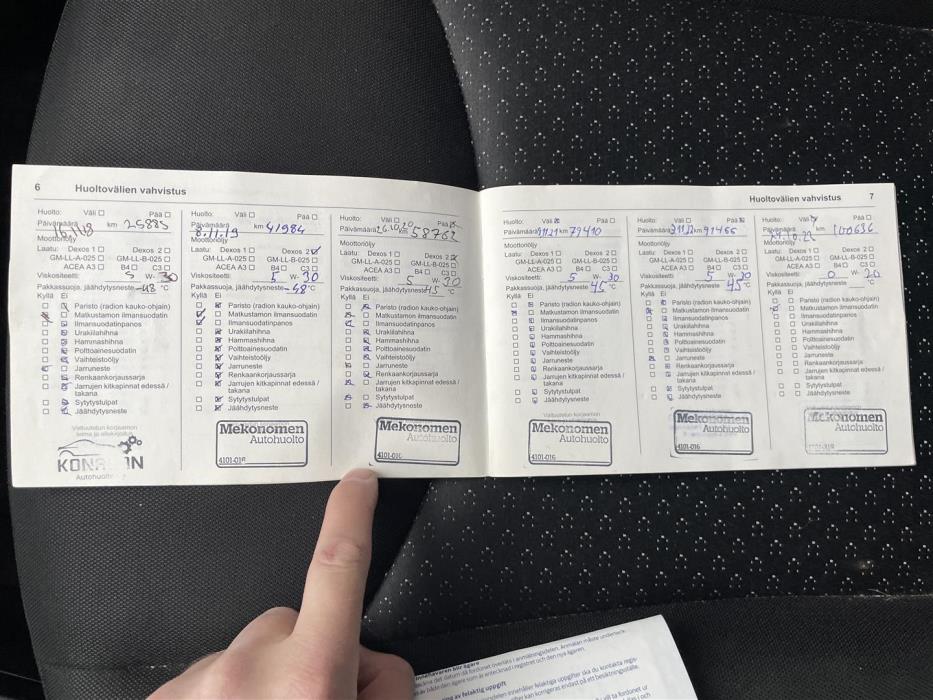 6 Huoltovälien vahvistus
Huolto: Väli Pää
Päivämäärä 16.1.18 km 25885
Moottoriöljy
Laatu: Dexos 1 Dexos 2
GM-LL-A-025 GM-LL-B-025
ACEA A3 B4 C3
Viskositeetti: 5 W- 30
Pakkassuoja, jäähdytysneste -48 °C
Kyllä Ei
Paristo (radion kauko-ohjain)
Matkustamon ilmansuodatin
Ilmansuodatinpanos
Urakilahihna
Hammashihna
Polttoainesuodatin
Vaihteistoöljy
Jarruneste
Renkaankorjaussarja
Jarrujen kitkapinnat edessä /
takana
Sytytystulpat
Jäähdytysneste
Valtuutetun korjaamon
Autohuolto
Huolto: Väli Pää
Päivämäärä 8.11.19 km 41984
Moottoriöljy
Laatu: Dexos 1 Dexos 2
GM-LL-A-025 GM-LL-B-025
ACEA A3 B4 C3
Viskositeetti: 5 W- 30
Pakkassuoja, jäähdytysneste -48 °C
Kyllä Ei
Paristo (radion kauko-ohjain)
Matkustamon ilmansuodatin
Ilmansuodatinpanos
Urakilahihna
Hammashihna
Polttoainesuodatin
Vaihteistoöljy
Jarruneste
Renkaankorjaussarja
Jarrujen kitkapinnat edessä /
takana
Sytytystulpat
Jäähdytysneste
Mekonomen
Autohuolto
4101-016
Huolto: Väli Pää
Päivämäärä 26.10.20 58762
Moottoriöljy
Laatu: Dexos 1 Dexos 2
GM-LL-A-025 GM-LL-B-025
ACEA A3 B4 C3
Viskositeetti: 5 W- 30
Pakkassuoja, jäähdytysneste 45 °C
Kyllä Ei
Paristo (radion kauko-ohjain)
Matkustamon ilmansuodatin
Ilmansuodatinpanos
Urakilahihna
Hammashihna
Polttoainesuodatin
Vaihteistoöljy
Jarruneste
Renkaankorjaussarja
Jarrujen kitkapinnat edessä /
takana
Sytytystulpat
Jäähdytysneste
Mekonomen
Autohuolto
4101-016
Huoltovälien vahvistus 7
Huolto: Väli Pää
Päivämäärä km 79410
Moottoriöljy
Laatu: Dexos 1 Dexos 2
GM-LL-A-025 GM-LL-B-025
ACEA A3 B4 C3
Viskositeetti: 5 W- 30
Pakkassuoja, jäähdytysneste 45 °C
Kyllä Ei
Paristo (radion kauko-ohjain)
Matkustamon ilmansuodatin
Ilmansuodatinpanos
Urakilahihna
Hammashihna
Polttoainesuodatin
Vaihteistoöljy
Jarruneste
Renkaankorjaussarja
Jarrujen kitkapinnat edessä /
takana
Sytytystulpat
Jäähdytysneste
Valtuutetun korjaamon
Mekonomen
Autohuolto
4101-016
Huolto: Väli Pää
Päivämäärä km 91466
Moottoriöljy
Laatu: Dexos 1 Dexos 2
GM-LL-A-025 GM-LL-B-025
ACEA A3 B4 C3
Viskositeetti: 5 W- 30
Pakkassuoja, jäähdytysneste 45 °C
Kyllä Ei
Paristo (radion kauko-ohjain)
Matkustamon ilmansuodatin
Ilmansuodatinpanos
Urakilahihna
Hammashihna
Polttoainesuodatin
Vaihteistoöljy
Jarruneste
Renkaankorjaussarja
Jarrujen kitkapinnat edessä /
takana
Sytytystulpat
Jäähdytysneste
Mekonomen
Autohuolto
4101-016
Huolto: Väli Pää
Päivämäärä km 100636
Moottoriöljy
Laatu: Dexos 1 Dexos 2
GM-LL-A-025 GM-LL-B-025
ACEA A3 B4 C3
Viskositeetti: 0 W- 20
Pakkassuoja, jäähdytysneste °C
Kyllä Ei
Paristo (radion kauko-ohjain)
Matkustamon ilmansuodatin
Ilmansuodatinpanos
Urakilahihna
Hammashihna
Polttoainesuodatin
Vaihteistoöljy
Jarruneste
Renkaankorjaussarja
Jarrujen kitkapinnat edessä /
takana
Sytytystulpat
Jäähdytysneste
Mekonomen
Autohuolto